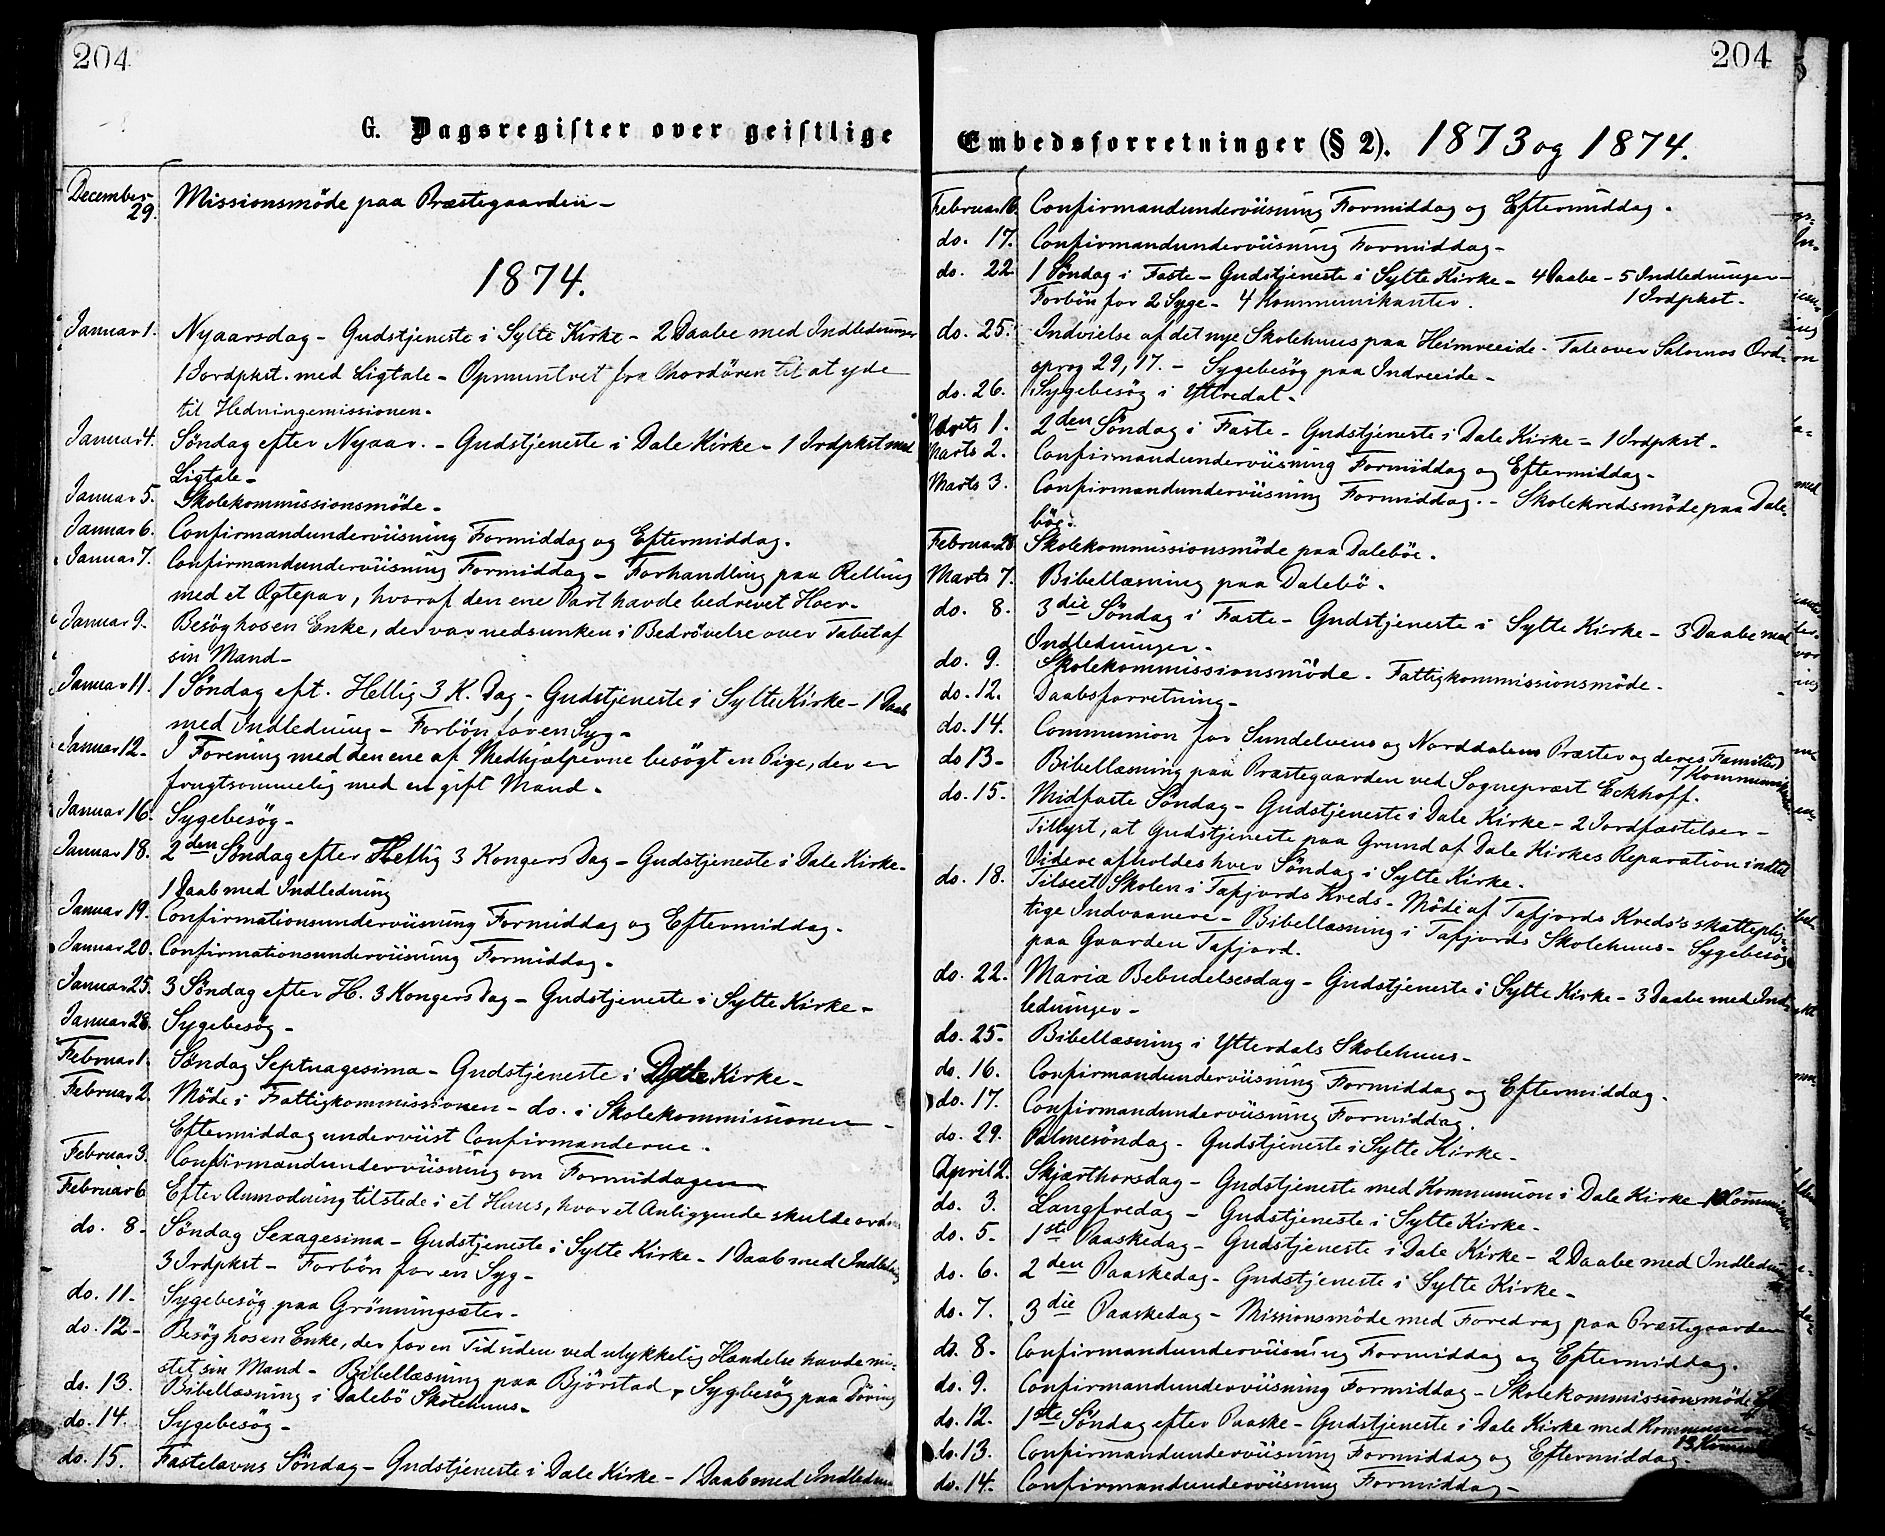 204
G. Dagsregister over geistlige
December 29. Missionsmöde paa Præstegaarden –
1874.
Januar 1. Nyaarsdag – Gudstjeneste i Sylte Kirke – 2 Daabe med Indledninger
1 Jordpkst. med Ligtale – Opmuntret fra Chordören til at yde
til Hedningemissionen.
Januar 4. Söndag efter Nyaar. – Gudstjeneste i Dale Kirke – 1 Irdpkst med
Ligtale –
Januar 5. Skolekommissionsmöde.
Januar 6. Confirmandunderviisning Formiddag og Eftermiddag.
Januar 7. Confirmandunderviisning Formiddag – Forhandling paa Relling
med et Ægtepar, hvoraf den ene Part havde bedrevet Hoer.
Januar 9. Besög hos en Enke, der var nedsunken i Bedrövelse over Tabet af
sin Mand –
Januar 11. 1 Söndag eft. Hellig 3 K. Dag – Gudstjeneste i Sylte Kirke – 1 Daab
med Indledning – Forbön for en Syg –
Januar 12. I Forening med den ene af Medhjælperne besögt en Pige, der er
frugtsommelig med en gift Mand.
Januar 16. Sygebesög –
Januar 18. 2den Söndag efter Hellig 3 Kongers Dag – Gudstjeneste i Dale Kirke.
1 Daab med Indledning
Januar 19. Confirmationsunderviisning Formiddag og Eftermiddag.
Januar 20. Confirmationsunderviisning Formiddag.
Januar 25. 3 Söndag efter H. 3 Kongers Dag – Gudstjeneste i Sylte Kirke –
Januar 28. Sygebesög –
Februar 1. Söndag Septuagesima – Gudstjeneste i Dale Kirke –
Februar 2. Möde i Fattigkommissionen – do. i Skolekommissionen –
Eftermiddag underviist Confirmanderne.
Februar 3. Confirmandunderviisning om Formiddagen
Februar 6. Efter Anmodning tilstede i et Huus, hvor et Anliggende skulde ordnes
do. 8 – Söndag Sexagesima – Gudstjeneste i Sylte Kirke – 1 Daab med Indledning
3 Irdpkst – Forbön for en Syg –
do. 11 – Sygebesög paa Grönningsæter.
do. 12 – Besög hos en Enke, der for en Tid siden ved ulykkelig Hændelse havde mi-
stet sin Mand – Bibellæsning paa Björstad, Sygebesög paa Döving
do. 13. Bibellæsning i Dalebö Skolehuus –
do. 14. Sygebesög –
do. 15. Fastelavns Söndag – Gudstjeneste i Dale Kirke – 1 Daab med Indledning
204
Embedsforretninger (§ 2). 1873 og 1874.
Februar 16. Confirmandunderviisning Formiddag og Eftermiddag.
do. 17. Confirmandunderviisning Formiddag –
do. 22. 1 Söndag i Faste – Gudstjeneste i Sylte Kirke – 4 Daabe – 5 Indledninger –
Forbön for 2 Syge – 4 Kommunikanter. 1 Irdpkst –
do. 25. Indvielse af det nye Skolehuus paa Heimreeide. Tale over Salomos Ord-
sprog 29, 17. – Sygebesög paa Indreeide –
do. 26. Sygebesög i Yttredal.
Marts 1. 2den Söndag i Faste – Gudstjeneste i Dale Kirke – 1 Irdpkst –
Marts 2. Confirmandunderviisning Formiddag og Eftermiddag –
Marts 3. Confirmandunderviisning Formiddag. – Skolekredsmöde paa Dale-
böe.
Februar 28 Skolekommissionsmöde paa Daleböe.
Marts 7. Bibellæsning paa Dalebö.
do. 8. 3die Söndag i Faste – Gudstjeneste i Sylte Kirke – 3 Daabe med
Indledninger.
do. 9. Skolekommissionsmöde. Fattigkommissionsmöde.
do. 12. Daabsforretning –
do. 14. Communion for Sundelvens og Norddalens Præster og deres Familier
7 Kommunikanter
do 13 – Bibellæsning paa Præstegaarden ved Sognepræst Eckhoff.
do. 15. Midfaste Söndag – Gudstjeneste i Dale Kirke – 2 Jordfæstelser –
Tillyst, at Gudstjeneste paa Grund af Dale Kirkes Reparation indtil
Videre afholdes hver Söndag i Sylte Kirke.
do. 18. Tilseet Skolen i Tafjords Kreds – Möde af Tafjords Kreds's skatteplig-
tige Indvaanere – Bibellæsning i Tafjords Skolehuus – Sygebesög
paa Gaarden Tafjord.
do. 22. Maria Bebudelsesdag – Gudstjeneste i Sylte Kirke – 3 Daabe med Ind-
ledninger –
do. 25 – Bibellæsning i Ytterdals Skolehuus –
do. 16. Confirmandunderviisning Formiddag og Eftermiddag.
do. 17. Confirmandunderviisning Formiddag.
do. 29. Palmesöndag – Gudstjeneste i Sylte Kirke –
April 2. Skjærthorsdag – Gudstjeneste med Kommunion i Dale Kirke –
do. 3. Langfredag – Gudstjeneste i Sylte Kirke –
do. 5 – 1ste Paaskedag – Gudstjeneste i Dale Kirke – 2 Daabe med Indledninger
do. 6. 2den Paaskedag – Gudstjeneste i Sylte Kirke –
do. 7. 3die Paaskedag – Missionsmöde med Foredrag paa Præstegaarden
do. 8. Confirmandunderviisning Formiddag og Eftermiddag.
do. 9. Confirmandunderviisning Formiddag – Skolekommissionsmöde
do. 12. 1ste Söndag efter Paaske – Gudstjeneste i Dale Kirke med Kommunion
do. 13. Confirmandunderviisning Formiddag og Eftermiddag.
do. 14. Confirmandunderviisning Formiddag –